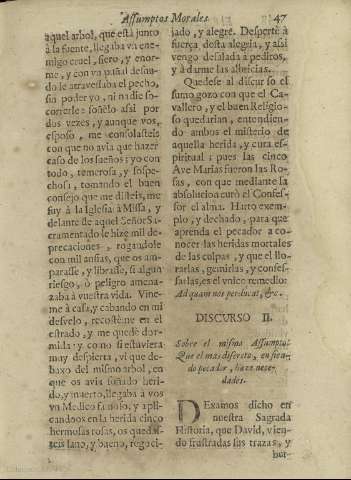 Assumptos Morales. 47
aquel arbol, que està junto
à la fuente, llegaba vn ene-
migo cruel, fiero, y enor-
me, y con vn puñal desnu-
do le atravessaba el pecho,
sin poder yo, ni nadie so-
correrle: soñèlo assi por
dos vezes, y aunque vos,
esposo, me consolasteis
con que no avia que hazer
caso de los sueños; yo con
todo, temerosa, y sospe-
chosa, tomando el buen
consejo que me disteis, me
fuy à la Iglesia à Missa, y
delante de aquel Señor Sa-
cramentado le hize mil de-
precaciones, rogandole
con mil ansias, que os am-
parasse, y librasse, si algun
riesgo, ò peligro amena-
zaba à vuestra vida. Vine-
me à casa, y cabando en mi
desvelo, recostème en el
estrado, y me quedè dor-
mida: y como si estuviera
muy despierta, vi que de-
baxo del mismo arbol, en
que os avia soñado heri-
do, y muerto, llegaba à vos
vn Medico famoso, y apli-
candoos en la herida cinco
hermosas rosas, os queda-
steis sano, y bueno, regoci-
jado, y alegre. Despertè à
fuerça desta alegria, y assi
vengo desalada à pediros,
y à darme las albricias.
Quedese al discurso el
sumo gozo con que el Ca-
vallero, y el buen Religio-
so quedarian, entendien-
do ambos el misterio de
aquella herida, y cura es-
piritual; pues las cinco
Ave Marias fueron las Ro-
sas, con que mediante la
absolucion curò el Confes-
sor el alma. Harto exem-
plo, y dechado, para que
aprenda el pecador a co-
nocer las heridas mortales
de las culpas, y que el llo-
rarlas, gemirlas, y confes-
sarlas, es el vnico remedio:
Ad quam nos perducat, &c.
DISCURSO II.
Sobre el mismo Assumpto:
Que el mas discreto, en sien-
do pecador, haze nece-
dades.
DExamos dicho en
nuestra Sagrada
Historia, que David, vien-
do frustradas sus trazas, y
bur-